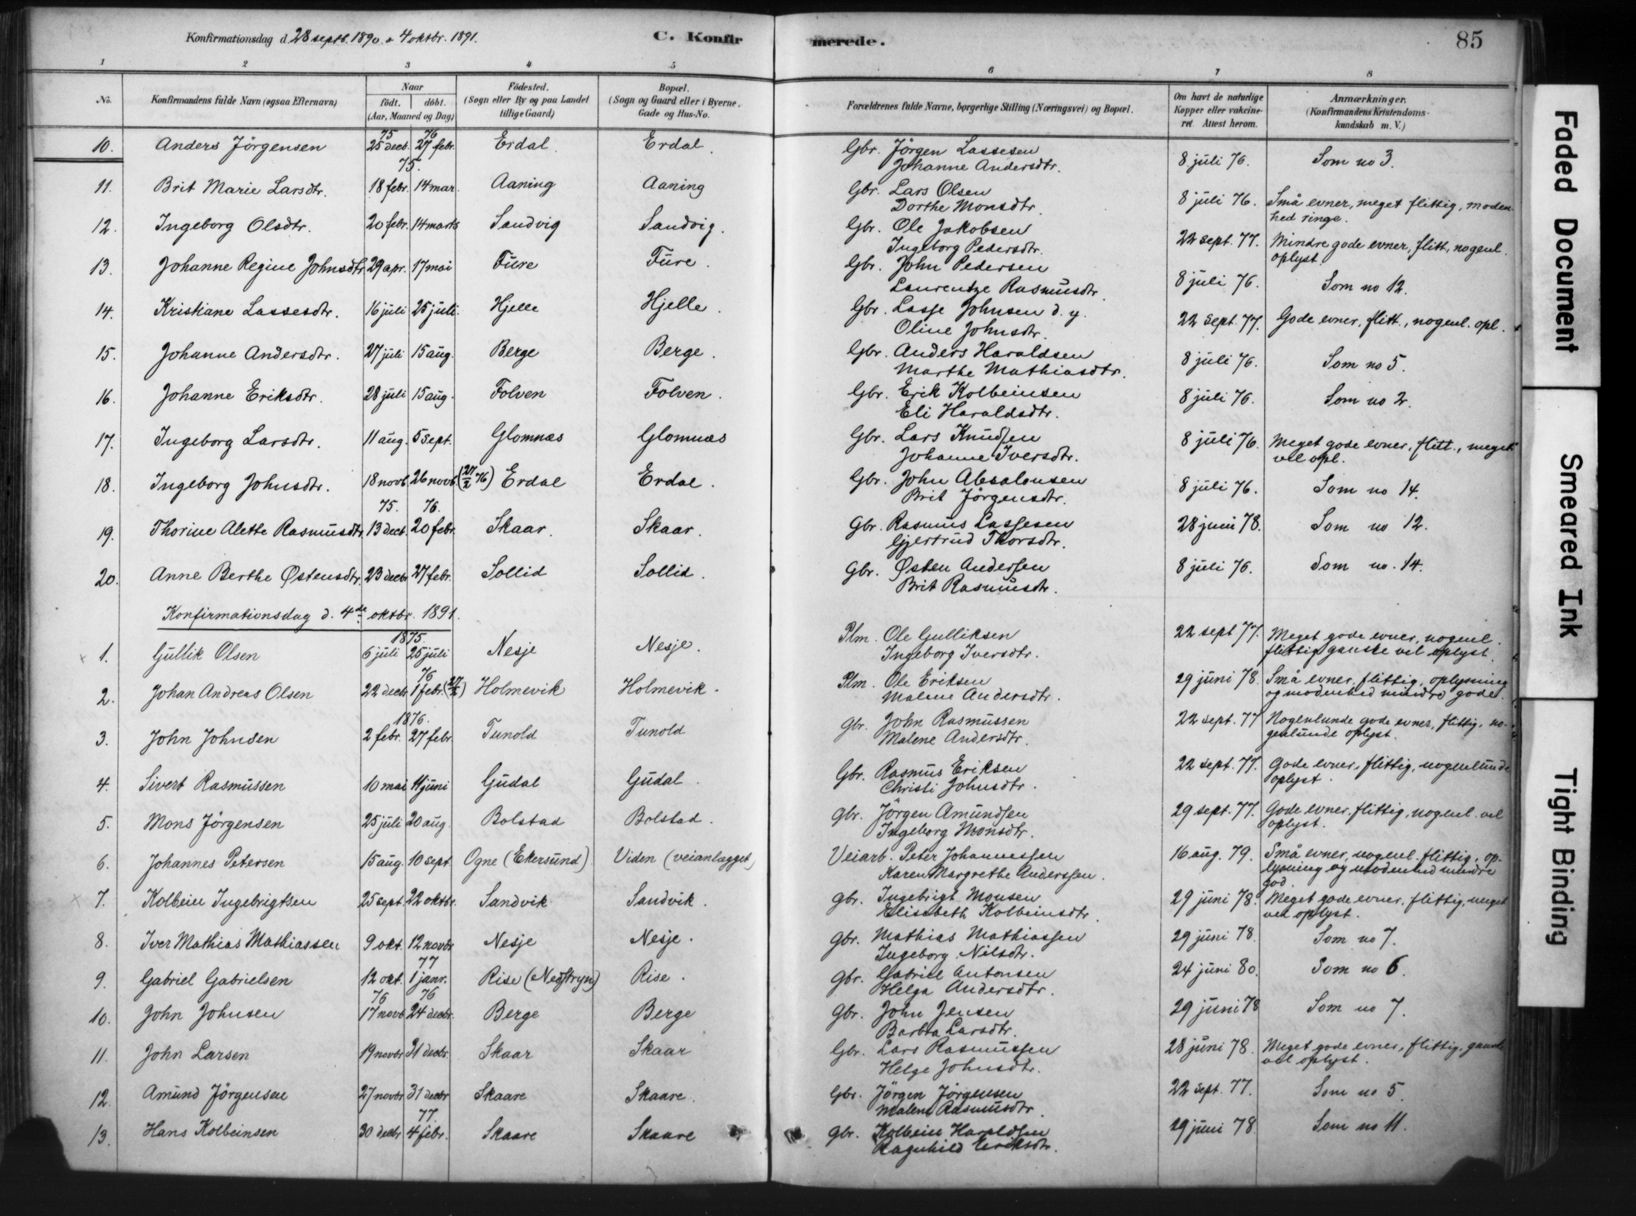 Konfirmationsdag d. 28 septb. 1890. & 4 oktbr. 1891.
C. Konfirmerede.
85
1 2 3 4 5 6 7 8
No. Konfirmandens fulde Navn (ogsaa Efternavn) Naar født. døbt. (Aar, Maaned og Dag) Fødested. (Sogn eller By og paa Landet tillige Gaard) Bopæl. (Sogn og Gaard eller i Byerne. Gade og Hus-No. Forældrenes fulde Navne, borgerlige Stilling (Næringsvei) og Bopæl. Om havt de naturlige Kopper eller vakcineret. Attest herom. Anmærkninger. (Konfirmandens Kristendomskundskab m. V.)
10. Anders Jörgensen 75 25 decb. 76 27 febr. Erdal. Erdal. Gbr. Jörgen Lassesen 8 juli 76. Som no 3.
Johanne Andersdtr.
75.
11. Brit Marie Larsdtr. 18 febr. 14 mar. Aaning Aaning Gbr. Lars Olsen 8 juli 76. Små evner, meget flittig, moden-
Dorthe Monsdtr. hed ringe.
12. Ingeborg Olsdtr. 20 febr. 14 marts Sandvig Sandvig. Gbr. Ole Jakobsen 22 sept. 77. Mindre gode evner, flitt, nogenl.
Ingeborg Pedersdtr. oplyst.
13. Johanne Regine Johnsdtr. 29 apr. 17 mai Fure Fure. Gbr. John Pedersen 8 juli 76. Som no 12.
Laurentze Rasmusdtr.
14. Kristiane Lassesdtr. 16 juli 25 juli. Hjelle Hjelle. Gbr. Lasse Johnsen d. y. 22 sept. 77. Gode evner, flitt., nogenl. opl.
Oline Johnsdtr.
15. Johanne Andersdtr. 27 juli 15 aug. Berge Berge. Gbr. Anders Haraldsen 8 juli 76. Som no 5.
Marthe Mathiasdtr.
16. Johanne Eriksdtr. 28 juli 15 aug. Folven Folven. Gbr. Erik Kolbeinsen 8 juli 76. Som no 2.
Eli Haraldsdtr.
17. Ingeborg Larsdtr. 11 aug. 5 sept. Glomnæs Glomnæs Gbr. Lars Knudsen 8 juli 76. Meget gode evner, flitt., meget
Johanne Iversdtr. vel opl.
18. Ingeborg Johnsdtr. 18 novb. 26 novb. (27/2 76) Erdal Erdal. Gbr. John Absalonsen 8 juli 76. Som no 14.
Brit Jörgensdtr.
75. 76.
19. Thorine Alette Rasmusdtr. 13 decb. 20 febr. Skaar. Skaar. Gbr. Rasmus Lassesen 28 juni 78. Som no 12.
Gjertrud Thorsdtr.
20. Anne Berthe Østensdtr. 23 decb. 27 febr. Sollid Sollid. Gbr. Østen Andersen 8 juli 76. Som no. 14.
Brit Rasmusdtr.
Konfirmationsdag d. 4de oktbr. 1891.
1875
1. Gullik Olsen 6 juli 25 juli Nesje Nesje. Plm. Ole Gulliksen 22 sept 77. Meget gode evner, nogenl.
Ingeborg Iversdtr. flittig, ganske vel oplyst.
76
2. Johan Andreas Olsen 22 decbr. 1 febr. Holmevik Holmevik. Plm. Ole Eriksen 29 juni 78. Små evner, flittig, oplysning
Malene Andersdtr. og modenhed mindre gode.
1876.
3. John Johnsen 2 febr. 27 febr. Tunold Tunold Gbr. John Rasmussen 22 sept. 77 Nogenlunde gode evner, flittig, no-
Malene Andersdtr. genlunde oplyst.
4. Sivert Rasmussen 10 mai 11 juni Gudal Gudal. Gbr. Rasmus Eriksen 22 sept. 77. Gode evner, flittig, nogenlunde
Christi Johnsdtr. oplyst.
5. Mons Jörgensen 25 juli 20 aug. Bolstad Bolstad. Gbr. Jörgen Amundsen 29 sept. 77. Gode evner, flittig, nogenl. vel
Ingeborg Monsdtr. oplyst.
6. Johannes Petersen 15 aug. 10 sept. Ogne (Ekersund) Viden (veianlægget) Veiarb. Peter Johannessen 16 aug. 79. Små evner, nogenl. flittig, op-
Karen Margrethe Anderssen. lysning og modenhed mindre
god.
7. Kolbein Ingebrigtsen 25 sept. 22 oktbr. Sandvik Sandvik. Gbr. Ingebrigt Monsen 29 juni 78. Meget gode evner, flittig, meget
Elisabeth Kolbeinsdtr. vel oplyst.
8. Iver Mathias Mathiassen 9 okt. 12 novbr. Nesje Nesje. Gbr. Mathias Mathiassen 29 juni 78. Som no 7.
Ingeborg Nilsdtr.
77
9. Gabriel Gabrielsen 12 okt. 1 janr. Rise (Nedstryn) Rise. Gbr. Gabriel Antonsen 24 juni 80. Som no 6.
Helga Andersdtr.
76 76
10. John Johnsen 17 novb. 24 decbr. Berge Berge Gbr. John Jensen 29 juni 78 Som no 7.
Barbra Larsdtr.
11. John Larsen 19 novbr. 31 decbr. Skaar Skaar Gbr. Lars Rasmussen 28 juni 78. Meget gode evner, flittig, ganske
Helge Johnsdtr. vel oplyst.
12. Amund Jörgensen 27 novbr. 31 decbr. Skaare Skaare. Gbr. Jörgen Jörgensen 22 sept. 77. Som no 5.
Malene Rasmusdtr.
77
13. Hans Kolbeinsen 30 decbr. 4 febr. Skaare Skaare Gbr. Kolbein Haraldsen 29 juni 78. Som no 11.
Ragnhild Eriksdtr.
Faded Document
Smeared Ink
Tight Binding